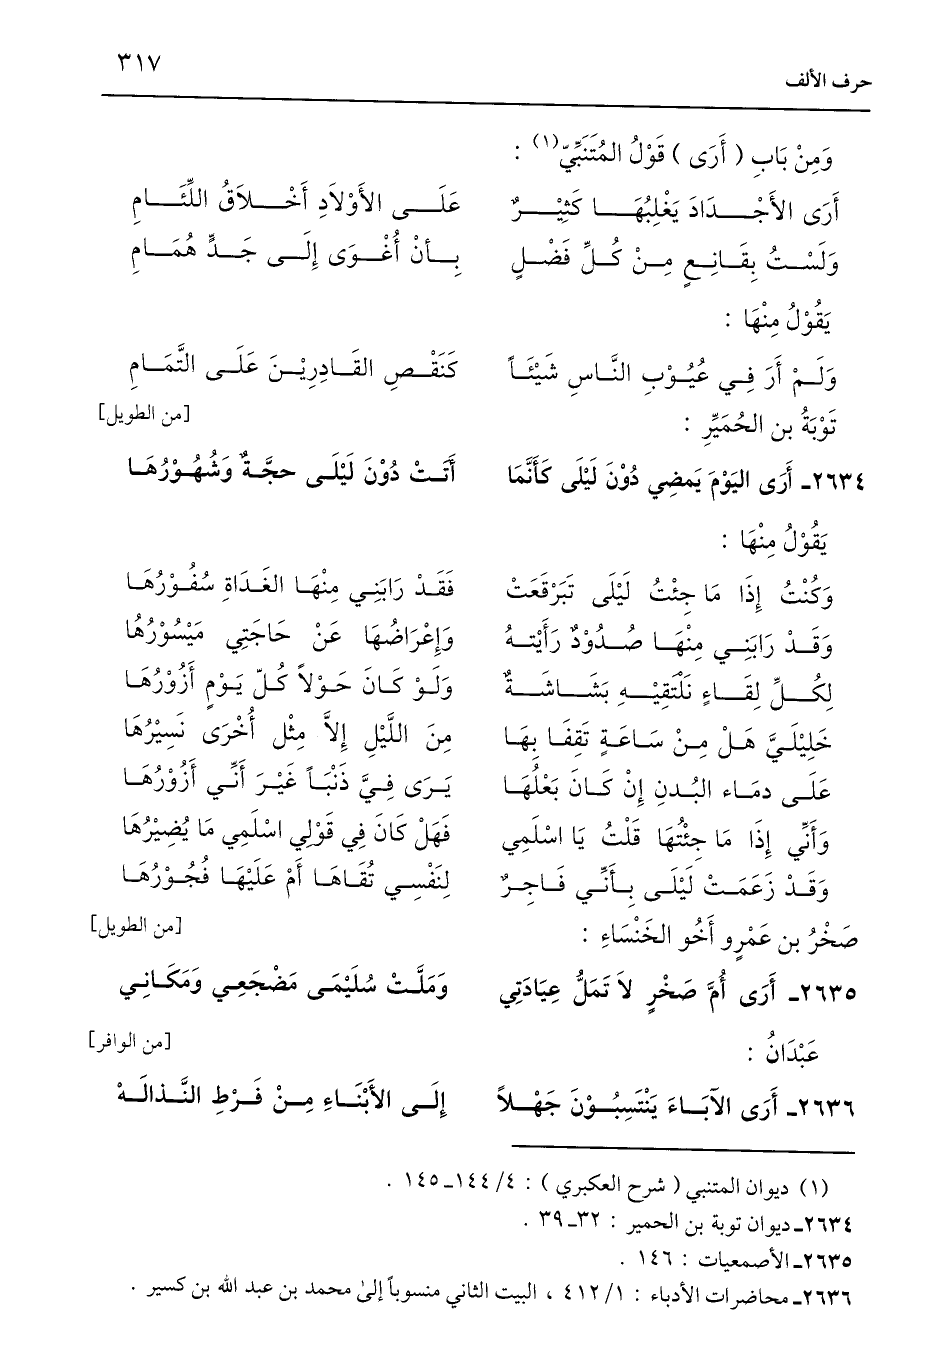 ٣١٧
حرف الألف
وَمِنْ بَابِ ( أَرَى ) قَوْلُ المُتَنَبِّيّ(١) :
أَرَى الأَجْـــدَادَ يَغْلِبُهَـــا كَثِيْـــرٌ عَلَـــى الأَوْلاَدِ أَخْـــلاَقُ اللِّئَـــامِ
وَلَسْـــتُ بِقَـــانِعٍ مِـــنْ كُـــلِّ فَضْـــلٍ بِـــأَنْ أُعْـــزَى إِلَـــى جَـــدٍّ هُمَـــامِ
يَقُوْلُ مِنْهَا :
وَلَـــمْ أَرَ فِـــي عُيُـــوْبِ النَّـاسِ شَيْئَـــاً كَنَقْـــصِ القَـــادِرِيْـــنَ عَلَـــى التَّمَـــامِ
تَوْبَةُ بن الحُمَيِّرِ : [من الطويل]
٢٦٣٤ـ أَرَى اليَوْمَ يَمضِي دُوْنَ لَيْلَى كَأَنَّمَا أَتَـتْ دُوْنَ لَيْلَـى حجَّـةٌ وَشُهُـوْرُهَـا
يَقُوْلُ مِنْهَا :
وَكُنْتُ إِذَا مَا جِئْتُ لَيْلَى تَبَرْقَعَتْ فَقَـدْ رَابَنِـي مِنْهَـا الغَـدَاةِ سُفُـوْرُهَـا
وَقَـدْ رَابَنِـي مِنْهَـا صُـدُوْدٌ رَأَيْتـهُ وَإِعْرَاضُهَا عَنْ حَاجَتِي مَيْسُوْرُهُا
لِكُـــلِّ لِقَـــاءٍ نَلْتَقِيْـــهِ بَشَـــاشَـــةٌ وَلَـوْ كَـانَ حَـوْلاً كُـلّ يَـومٍ أَزُوْرُهَـا
خَلِيْلَيَّ هَـلْ مِـنْ سَـاعَـةٍ تَقِفَـا بِهَـا مِنَ اللَّيْلِ إِلاَّ مِثْل أُخْرَى نَسِيْرُهَا
عَلَـى دمَـاء البُـدنِ إِنْ كَـانَ بَعْلُهَـا يَـرَى فِـيَّ ذَنْبَـاً غَيْـرَ أَنِّـي أَزُوْرُهَـا
وَأَنِّي إِذَا مَا جِئْتُهَا قَلْتُ يَا اسْلَمِي فَهَلْ كَانَ فِي قَوْلِي اسْلَمِي مَا يُضِيْرُهَا
وَقَـدْ زَعَمَـتْ لَيْلَـى بِـأَنِّـي فَـاجِـرٌ لِنَفْسِـي تُقَـاهَـا أَمْ عَلَيْهَـا فُجُـوْرُهَـا
صَخْرُ بن عَمْرٍو أَخُو الخَنْسَاءِ : [من الطويل]
٢٦٣٥ـ أَرَى أُمَّ صَخْرٍ لاَ تَمَلُّ عِيَادَتِي وَمَلَّـتْ سُلَيْمَـى مَضْجَعِـي وَمَكَـانِـي
عَبْدَانُ : [من الوافر]
٢٦٣٦ـ أَرَى الآبَـاءَ يَنْتَسِبُـوْنَ جَهْـلاً إِلَـى الأَبْنَـاءِ مِـنْ فَـرْطِ النَّـذالَـهْ
(١) ديوان المتنبي ( شرح العكبري ) : ٤/ ١٤٤ـ١٤٥ .
٢٦٣٤ـ ديوان توبة بن الحمير : ٣٢ـ٣٩ .
٢٦٣٥ـ الأصمعيات : ١٤٦ .
٢٦٣٦ـ محاضرات الأدباء : ١/ ٤١٢ ، البيت الثاني منسوباً إلىٰ محمد بن عبد الله بن كسير .